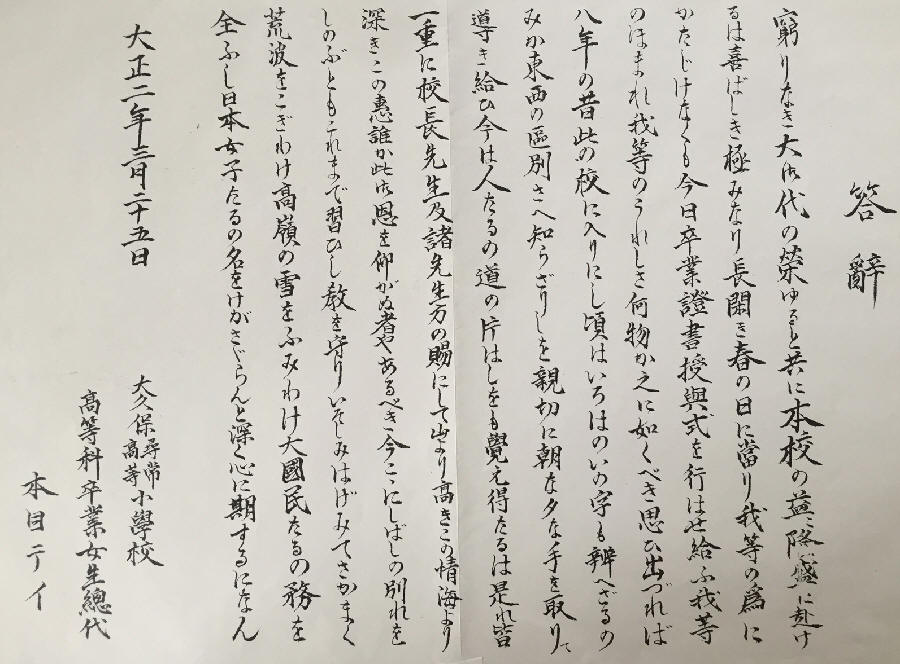 答辭
窮りなき大御代の榮ゆると共に本校の益々隆盛に赴け
るは喜ばしき極みなり長閑き春の日に當り我等の爲に
かたじけなくも今日卒業證書授與式を行はせ給ふ我等
のほまれ我等のうれしさ何物か之に如くべき思ひ出づれば
八年の昔此の校に入りにし頃はいろはのいの字も辨へざるの
みか東西の區別さへ知らざりしを親切に朝な夕な手を取りて
導き給ひ今は人たるの道の片はしをも覺え得たるは是れ皆
一重に校長先生及諸先生方の賜にして山より高きこの情海より
深きこの惠誰か此御恩を仰がぬ者やあるべき今ここにしばしの別れを
しのぶともこれまで習ひし教を守りいそしみはげみてさかまく
荒波をこぎわけ高嶺の雪をふみわけ大國民たるの務を
全ふし日本女子たるの名をけがさざらんと深く心に期するになん
大正二年三月二十五日
大久保尋常高等小學校
高等科卒業女生總代
本目テイ